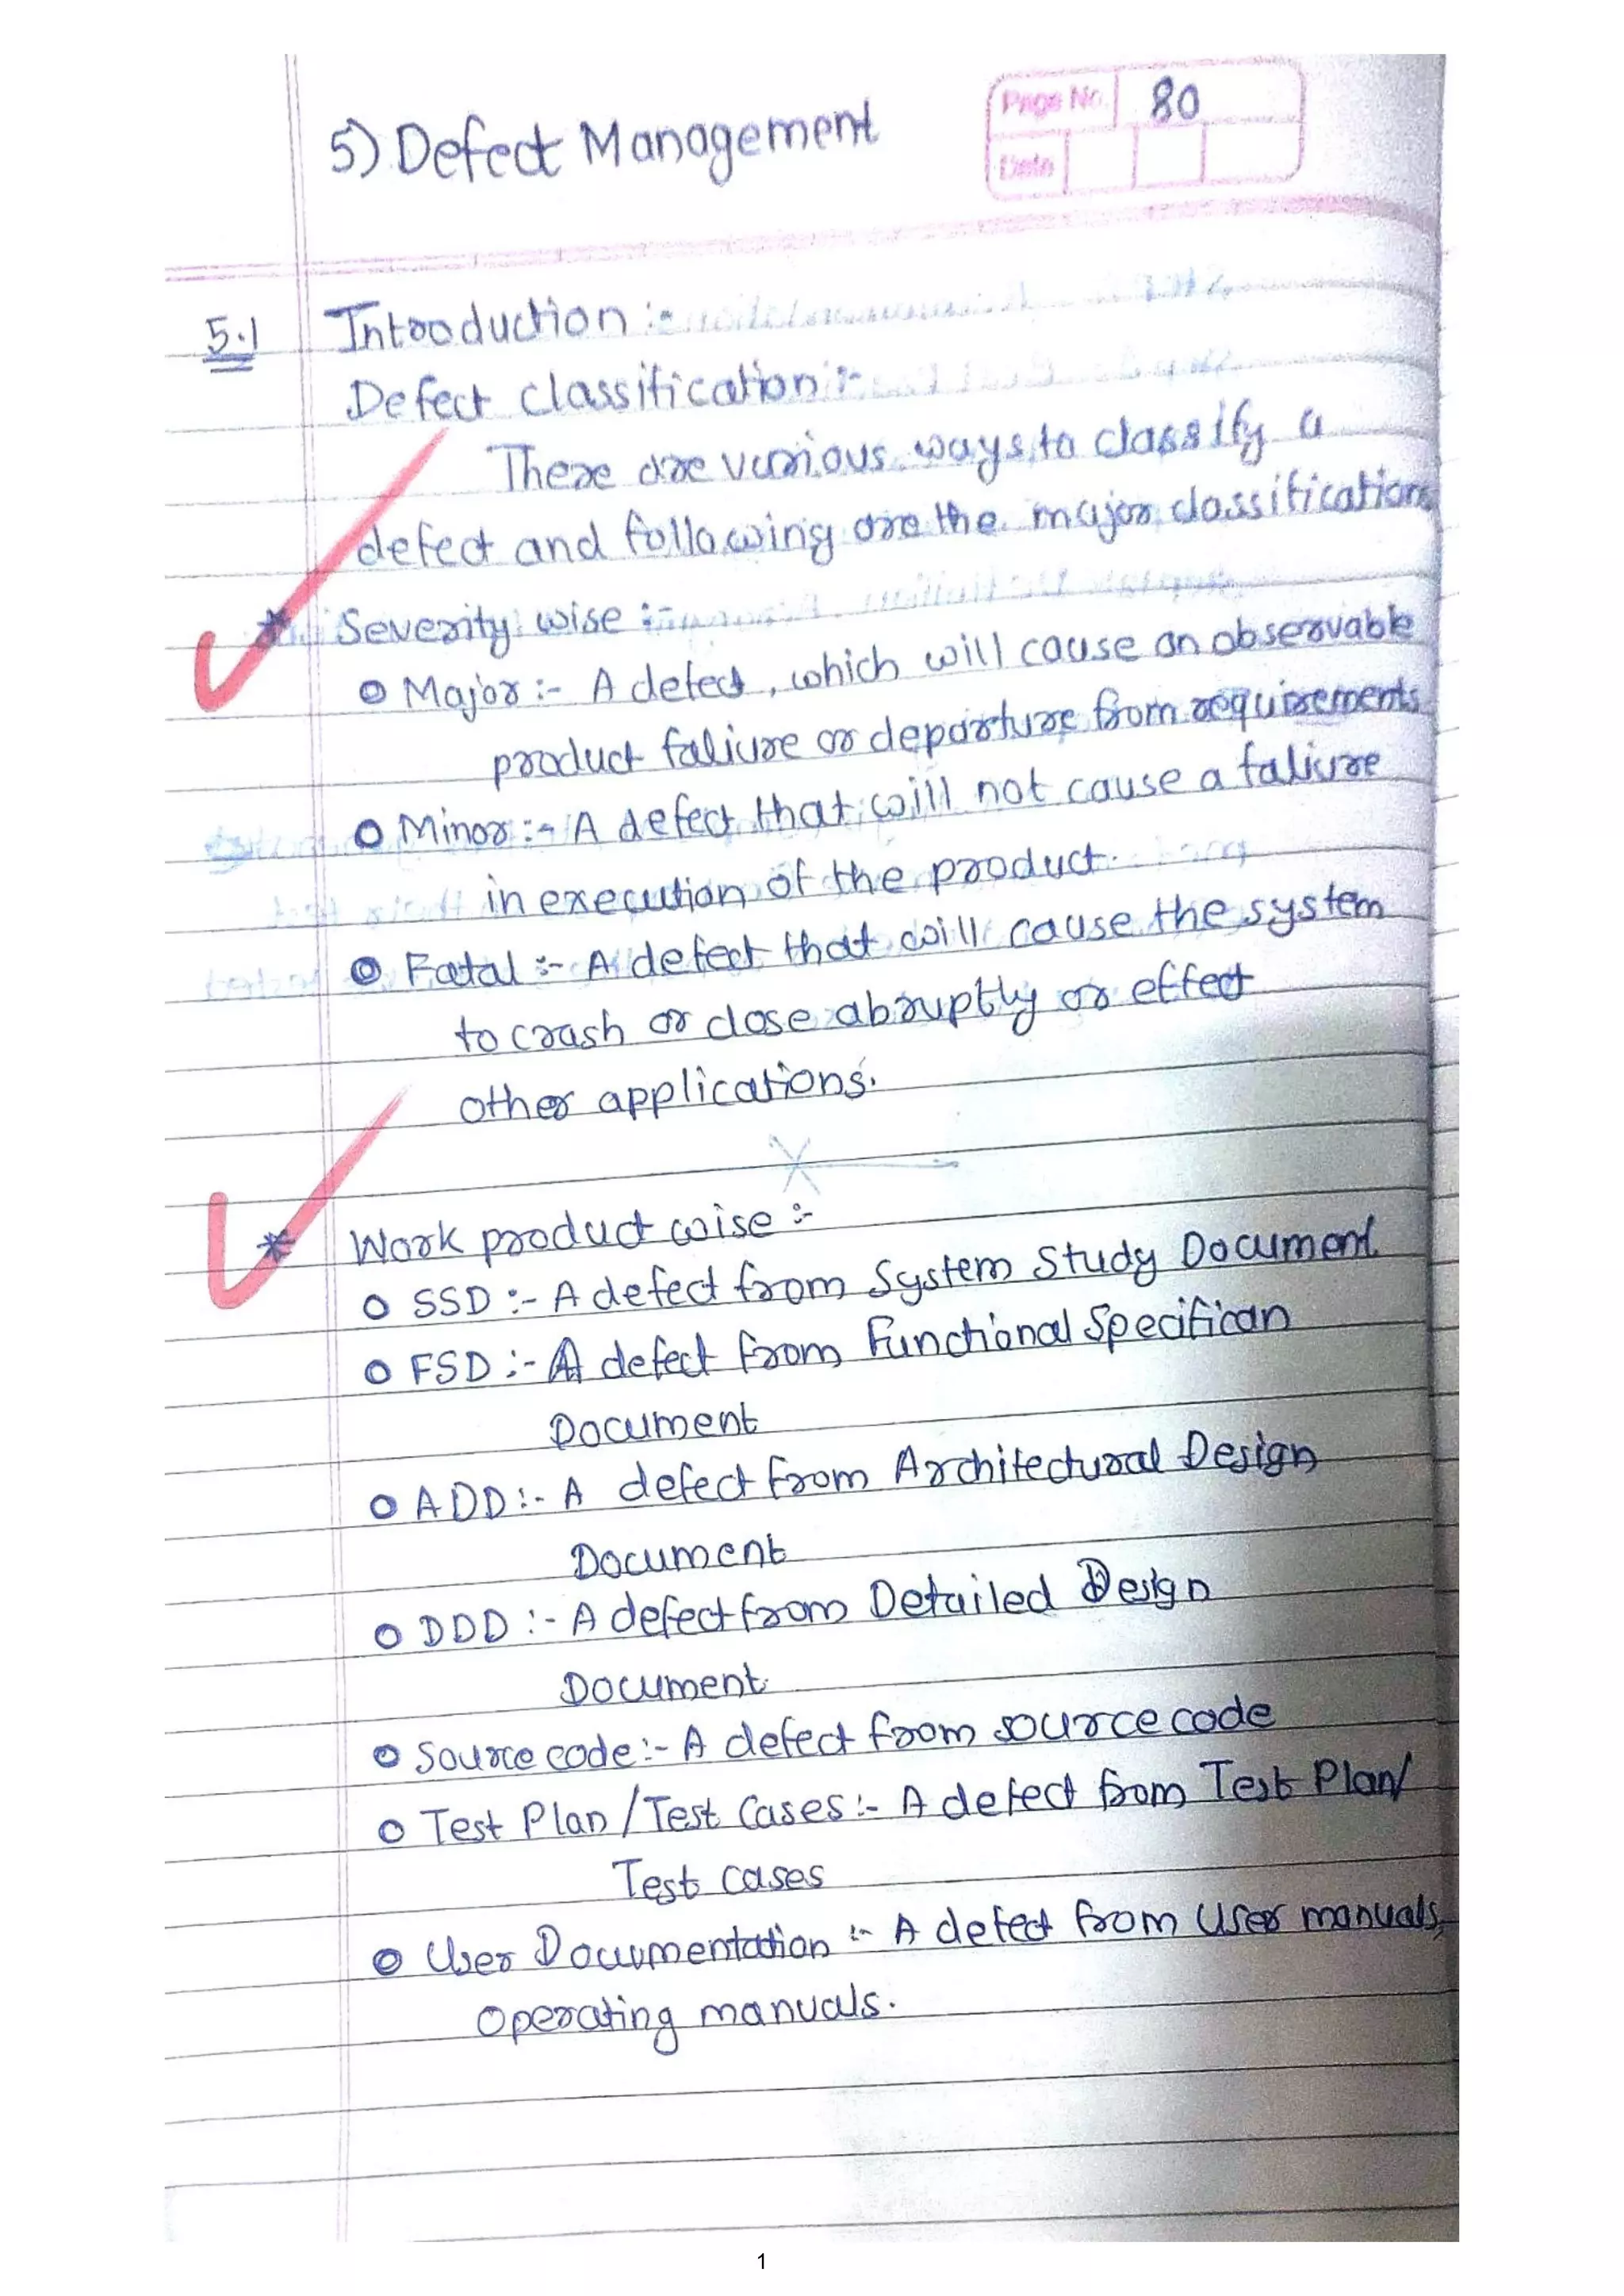 Page No. 80
5) Defect Management
Date
5.1 Introduction :-
Defect classification :-
There are various ways to classify a
defect and following are the major classifications
* Severity wise :-
o Major :- A defect, which will cause an observable
product faliure or departure from requirements
o Minor :- A defect that will not cause a faliure
in execution of the product.
o Fatal :- A defect that will cause the system
to crash or close abruptly or effect
other applications.
* Work product wise :-
o SSD :- A defect from System Study Document
o FSD :- A defect from Functional Specifican
Document
o ADD :- A defect from Architectural Design
Document
o DDD :- A defect from Detailed Design
Document.
o Source code :- A defect from source code
o Test Plan / Test Cases :- A defect from Test Plan/
Test cases
o User Documentation :- A defect from User manuals,
Operating manuals.
1